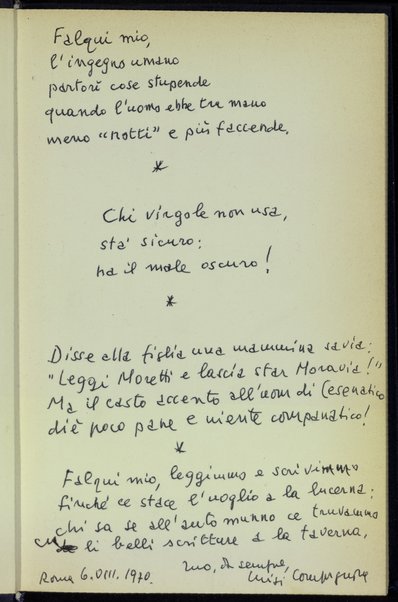 Falqui mio,
l'ingegno umano
partorì cose stupende
quando l'uomo ebbe tra mano
meno "notti" e più faccende.
*
Chi virgole non usa,
sta' sicuro:
ha il male oscuro!
*
Disse alla figlia una mammina savia:
"Leggi Moretti e lascia star Moravia!"
Ma il casto accento all'uom di Cesenatico
diè poco pane e niente companatico!
*
Falqui mio, leggimmo e scrivimmo
finché ce stace l'uoglio a la lucerna:
chi sa se all'auto munno ce truvammo
cu li belli scritture a la taverna.
tuo, da sempre,
Luigi Compagnone
Roma 6.VIII.1970.